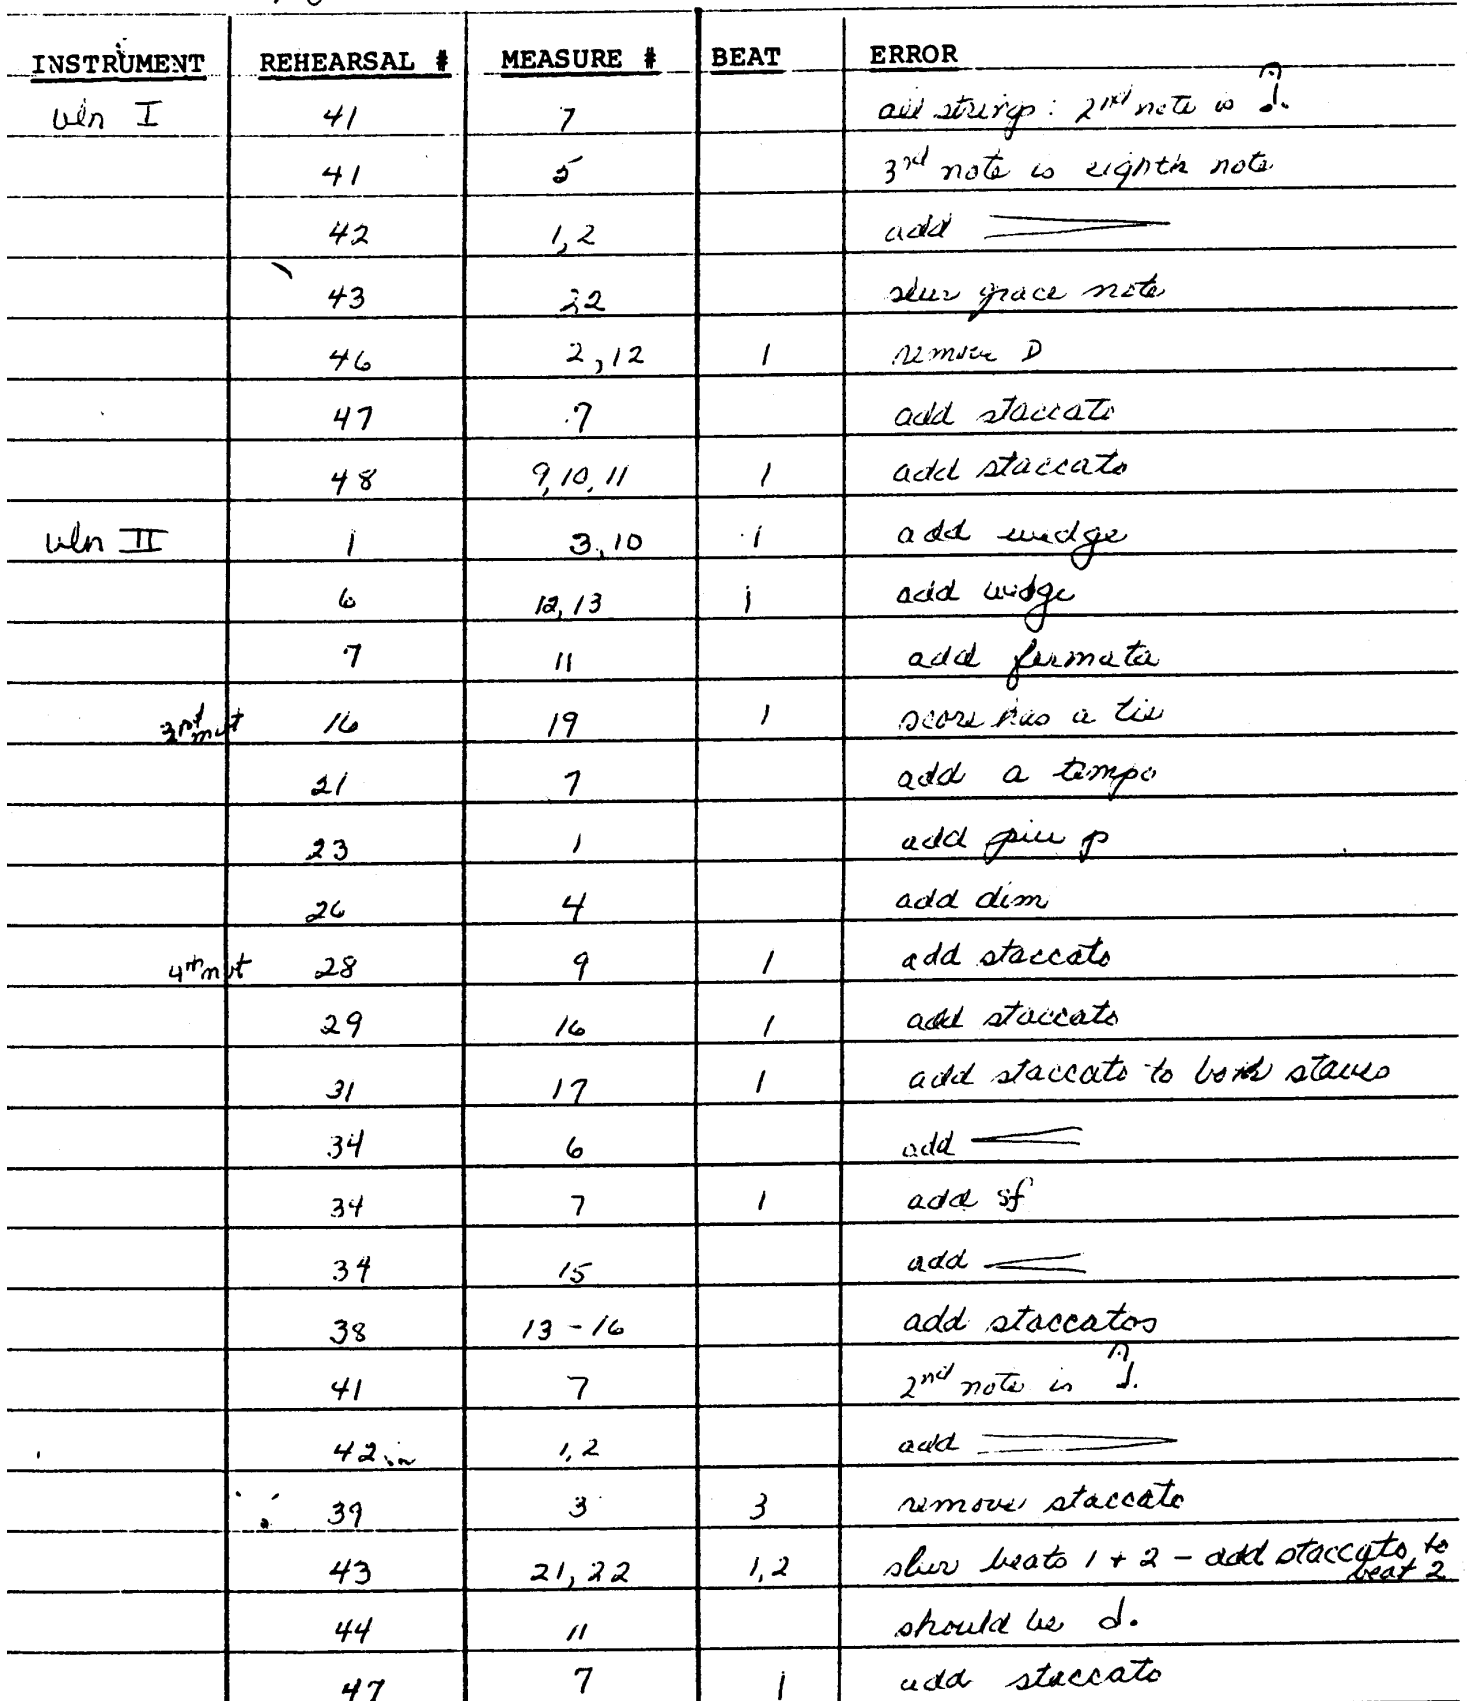 INSTRUMENT REHEARSAL # MEASURE # BEAT ERROR
vln I 41 7 all strings: 2nd note is 𝄐♩.
41 5 3rd note is eighth note
42 1,2 add >
43 22 slur grace note
46 2,12 1 remove D
47 7 add staccato
48 9,10,11 1 add staccato
vln II 1 3,10 1 add wedge
6 12,13 1 add wedge
7 11 add fermata
3rd mvt 16 19 1 score has a tie
21 7 add a tempo
23 1 add piu p
26 4 add dim
4th mvt 28 9 1 add staccato
29 16 1 add staccato
31 17 1 add staccato to both staves
34 6 add <
34 7 1 add sf
34 15 add <
38 13-16 add staccatos
41 7 2nd note is 𝄐♩.
42 1,2 add >
39 3 3 remove staccato
43 21,22 1,2 slur beats 1+2 - add staccato to beat 2
44 11 should be 𝅗𝅥.
47 7 1 add staccato